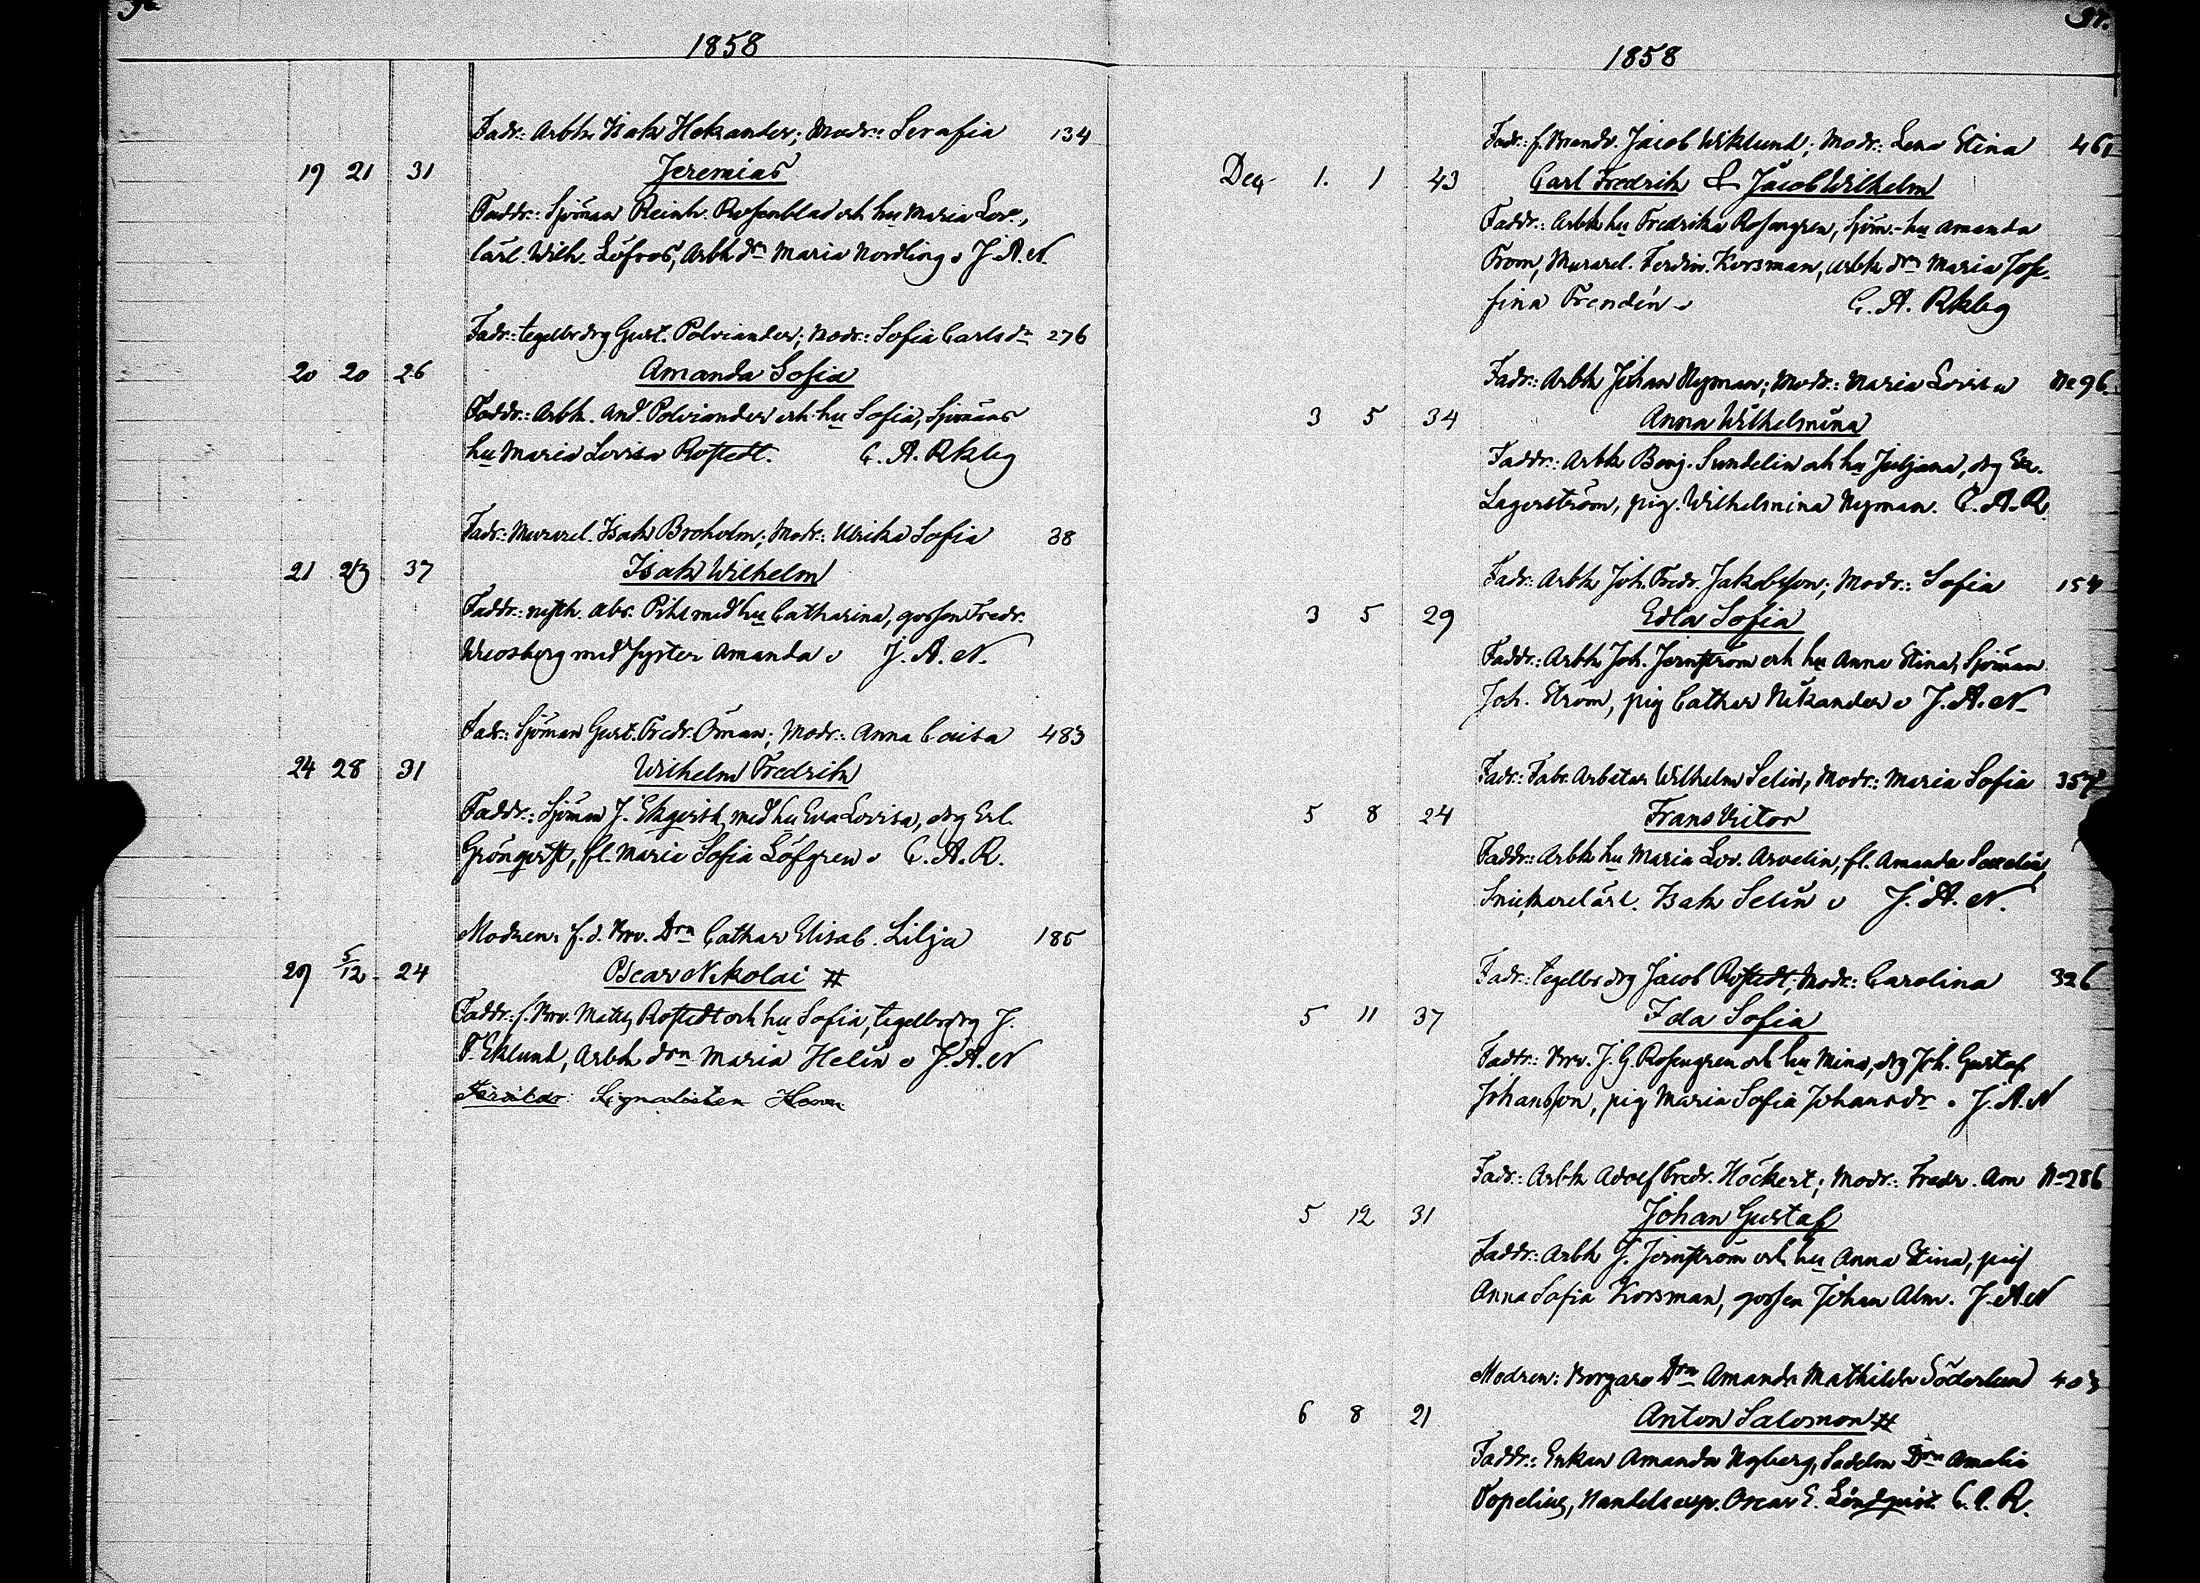 96
1858
Fadr: Arbk. Isak Hekander; Modr: Serafia 134
19 21 31 Jeremias
Faddr: Sjöman Reinh. Rosenblad och hu Maria Lov.,
lärl. Wilh. Löfroos, Arbk drn Maria Nordling. J. A. N.
Fadr: tegelbr drg Gust. Polviander; Modr: Sofia Carlsdr 276
20 20 26 Amanda Sofia
Faddr: Arbk. And. Polviander och hu Sofia, Sjömans
hu Maria Lovisa Rostedt. C. A. Rkbg
Fadr: Murarel. Isak Broholm; Modr: Ulrika Sofia 38
21 23 37 Isak Wilhelm
Faddr: Abr. Pihl med hu Catharina, gossen Fredr.
med syster Amanda J. A. N.
Fadr: Sjöman Gust. Fredr. Öman; Modr: Anna Caisa 483
24 28 31 Wilhelm Fredrik
Faddr: Sjöman J. Ekqvist med hu Eva Lovisa, drg Erl.
Grönqvist, fl. Maria Sofia Löfgren. C. A. R.
Modren: f. d. Brv. Drn Cathar Elisab. Lilja 185
29 5/12 24 Oscar Nikolai #
Faddr: f. Brv. Matts Rostedt och hu Sofia, tegelbr drg J.
F. Eklund, Arbk drn Maria Helin. J. A. N
Signalisten
97.
1858
Fadr: f. Brandv. Jacob Wiklund; Modr: Lena Stina 461
Dec 1. 1 43 Carl Fredrik & Jacob Wilhelm
Faddr: Arbk hu Fredrika Rosengren, Sjöm.-hu Amanda
From, Murarel. Ferdin. Korsman, Arbk drn Maria Jose-
fina Frendén. C. A. Rkbg
Fadr: Arbk Johan Nyman; Modr: Maria Lovisa No 96
3 5 34 Anna Wilhelmina
Faddr: Arbk Benj. Sundelin och hu Juljana, drg
Lagerström, pig. Wilhelmina Nyman. C. A. R.
Fadr: Arbk Joh. Fredr. Jakobsson; Modr: Sofia 154
3 5 29 Edla Sofia
Faddr: Arbk Joh. Jernström och hu Anna Stina, Sjöman
Joh. Ström, pig Cathar Nikander. J. A. N
Fadr: Fabr. Arbetar Wilhelm Selin, Modr: Maria Sofia 357
5 8 24 Frans Viktor
Faddr: Arbk hu Maria Lov. Arvelin, fl. Amanda
Snickarelärl. Isak Selin J. A. N.
Fadr: tegelbr drg Jacob Rostedt; Modr: Carolina 326
5 11 37 Ida Sofia
Faddr: Brv. J. G. Rosengren och hu Mina, drg Joh. Gustaf
Johansson, pig Maria Sofia Johansdr. J. A. N
Fadr: Arbk Adolf Fredr. Höckert; Modr: Fredr. Am No 286
5 12 31 Johan Gustaf
Faddr: Arbk J. Jernström och hu Anna Stina, pig
Anna Sofia Korsman, gossen Johan Alm. J. A. N
Modren: Borgare Drn Amanda Mathilda Söderlund 403
6 8 21 Anton Salomon #
Faddr: Enkan Amanda Nyberg, Sadelm Drn Amalia
Topelius, Handelsexp. Oscar E. Lindqvist C. A. R.